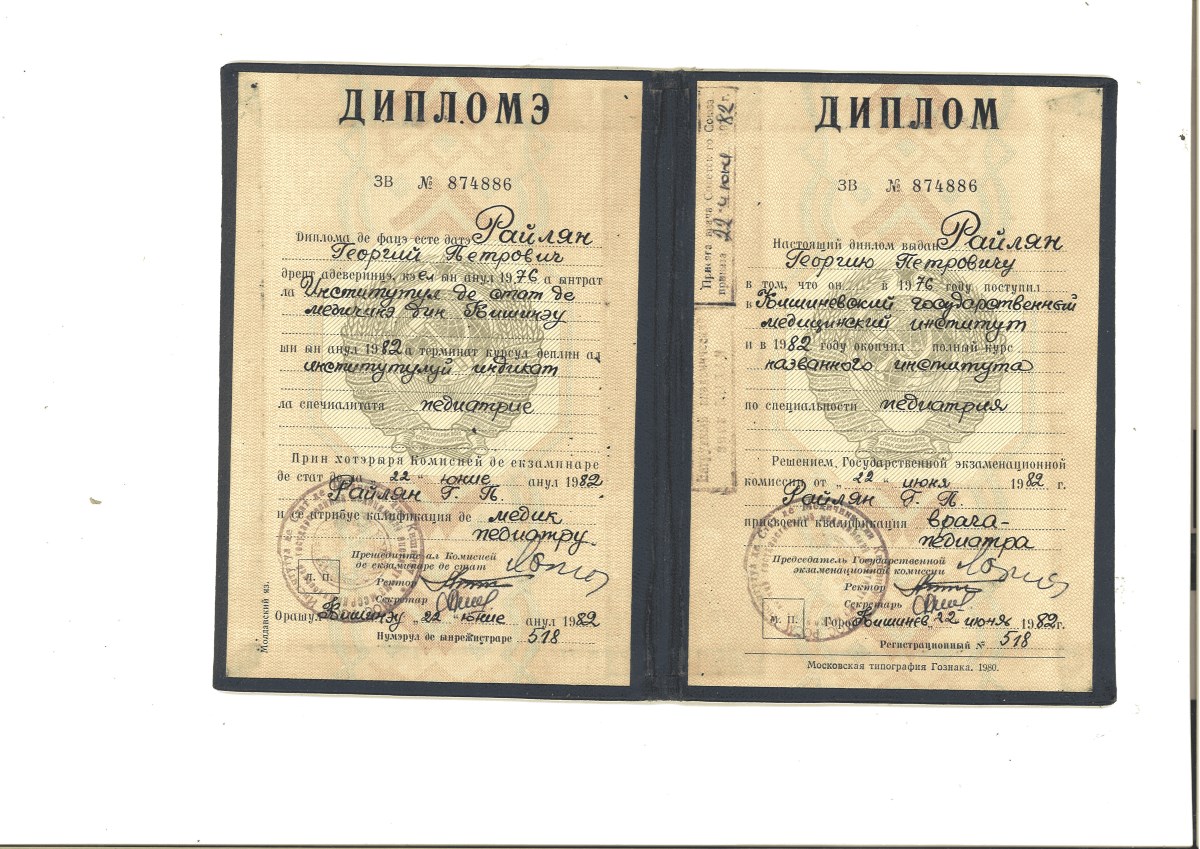 ДИПЛОМЭ
ЗВ № 874886
Диплома де фацэ есте датэ Райлян
Георгий Петрович
дрепт адевериницэ, кэ ел ын анул 1976 а ынтрат
ла Институтул де стат де
медичинэ дин Кишинэу
ши ын анул 1982 а терминат курсул деплин ал
институтулуй индикат
ла специалитатя педиатрие
Прин хотэрыря Комисией де екзаминаре
де стат де ла „22“ юние анул 1982
Райлян Г. П.
и се атрибуе калификация де медик
педиатру.
Прешединте ал Комисией
де екзаминаре де стат
Л. П.
Ректор
Секретар
Орашул Кишинэу „22“ юние анул 1982
Нумэрул де ынрежистраре 518
Молдавский яз.
Присяга врача Советского Союза
принята 22 июня 1982 г.
ДИПЛОМ
ЗВ № 874886
Настоящий диплом выдан Райлян
Георгию Петровичу
в том, что он в 1976 году поступил
в Кишиневский государственный
медицинский институт
и в 1982 году окончил полный курс
названного института
по специальности педиатрия
Решением Государственной экзаменационной
комиссии от „22“ июня 1982 г.
Райлян Г. П.
присвоена квалификация врача-
педиатра
Председатель Государственной
экзаменационной комиссии
Ректор
Секретарь
М. П.
Город Кишинев, „22“ июня 1982 г.
Регистрационный № 518
Московская типография Гознака. 1980.